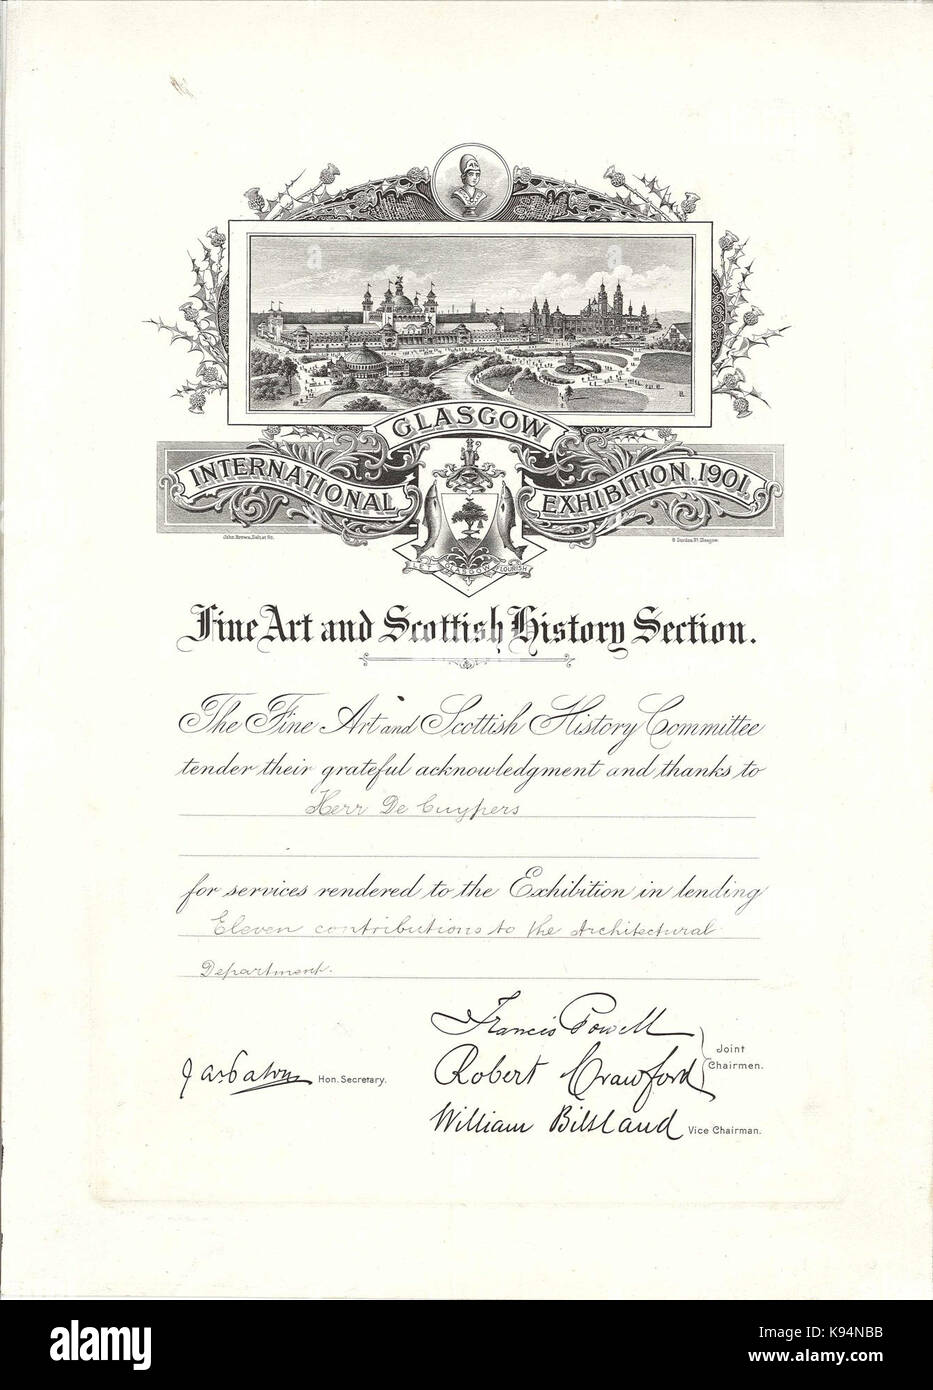 GLASGOW
INTERNATIONAL EXHIBITION. 1901.
LET GLASGOW FLOURISH
Fine Art and Scottish History Section.
The Fine Art and Scottish History Committee
tender their grateful acknowledgment and thanks to
Herr De Cuypers
for services rendered to the Exhibition in lending
Eleven contributions to the Architectural
Department.
Francis Powell
Robert Crawford
Joint
Chairmen.
Hon. Secretary.
William Bilsland
Vice Chairman.
a
alamy
Image ID: K94NBB
www.alamy.com